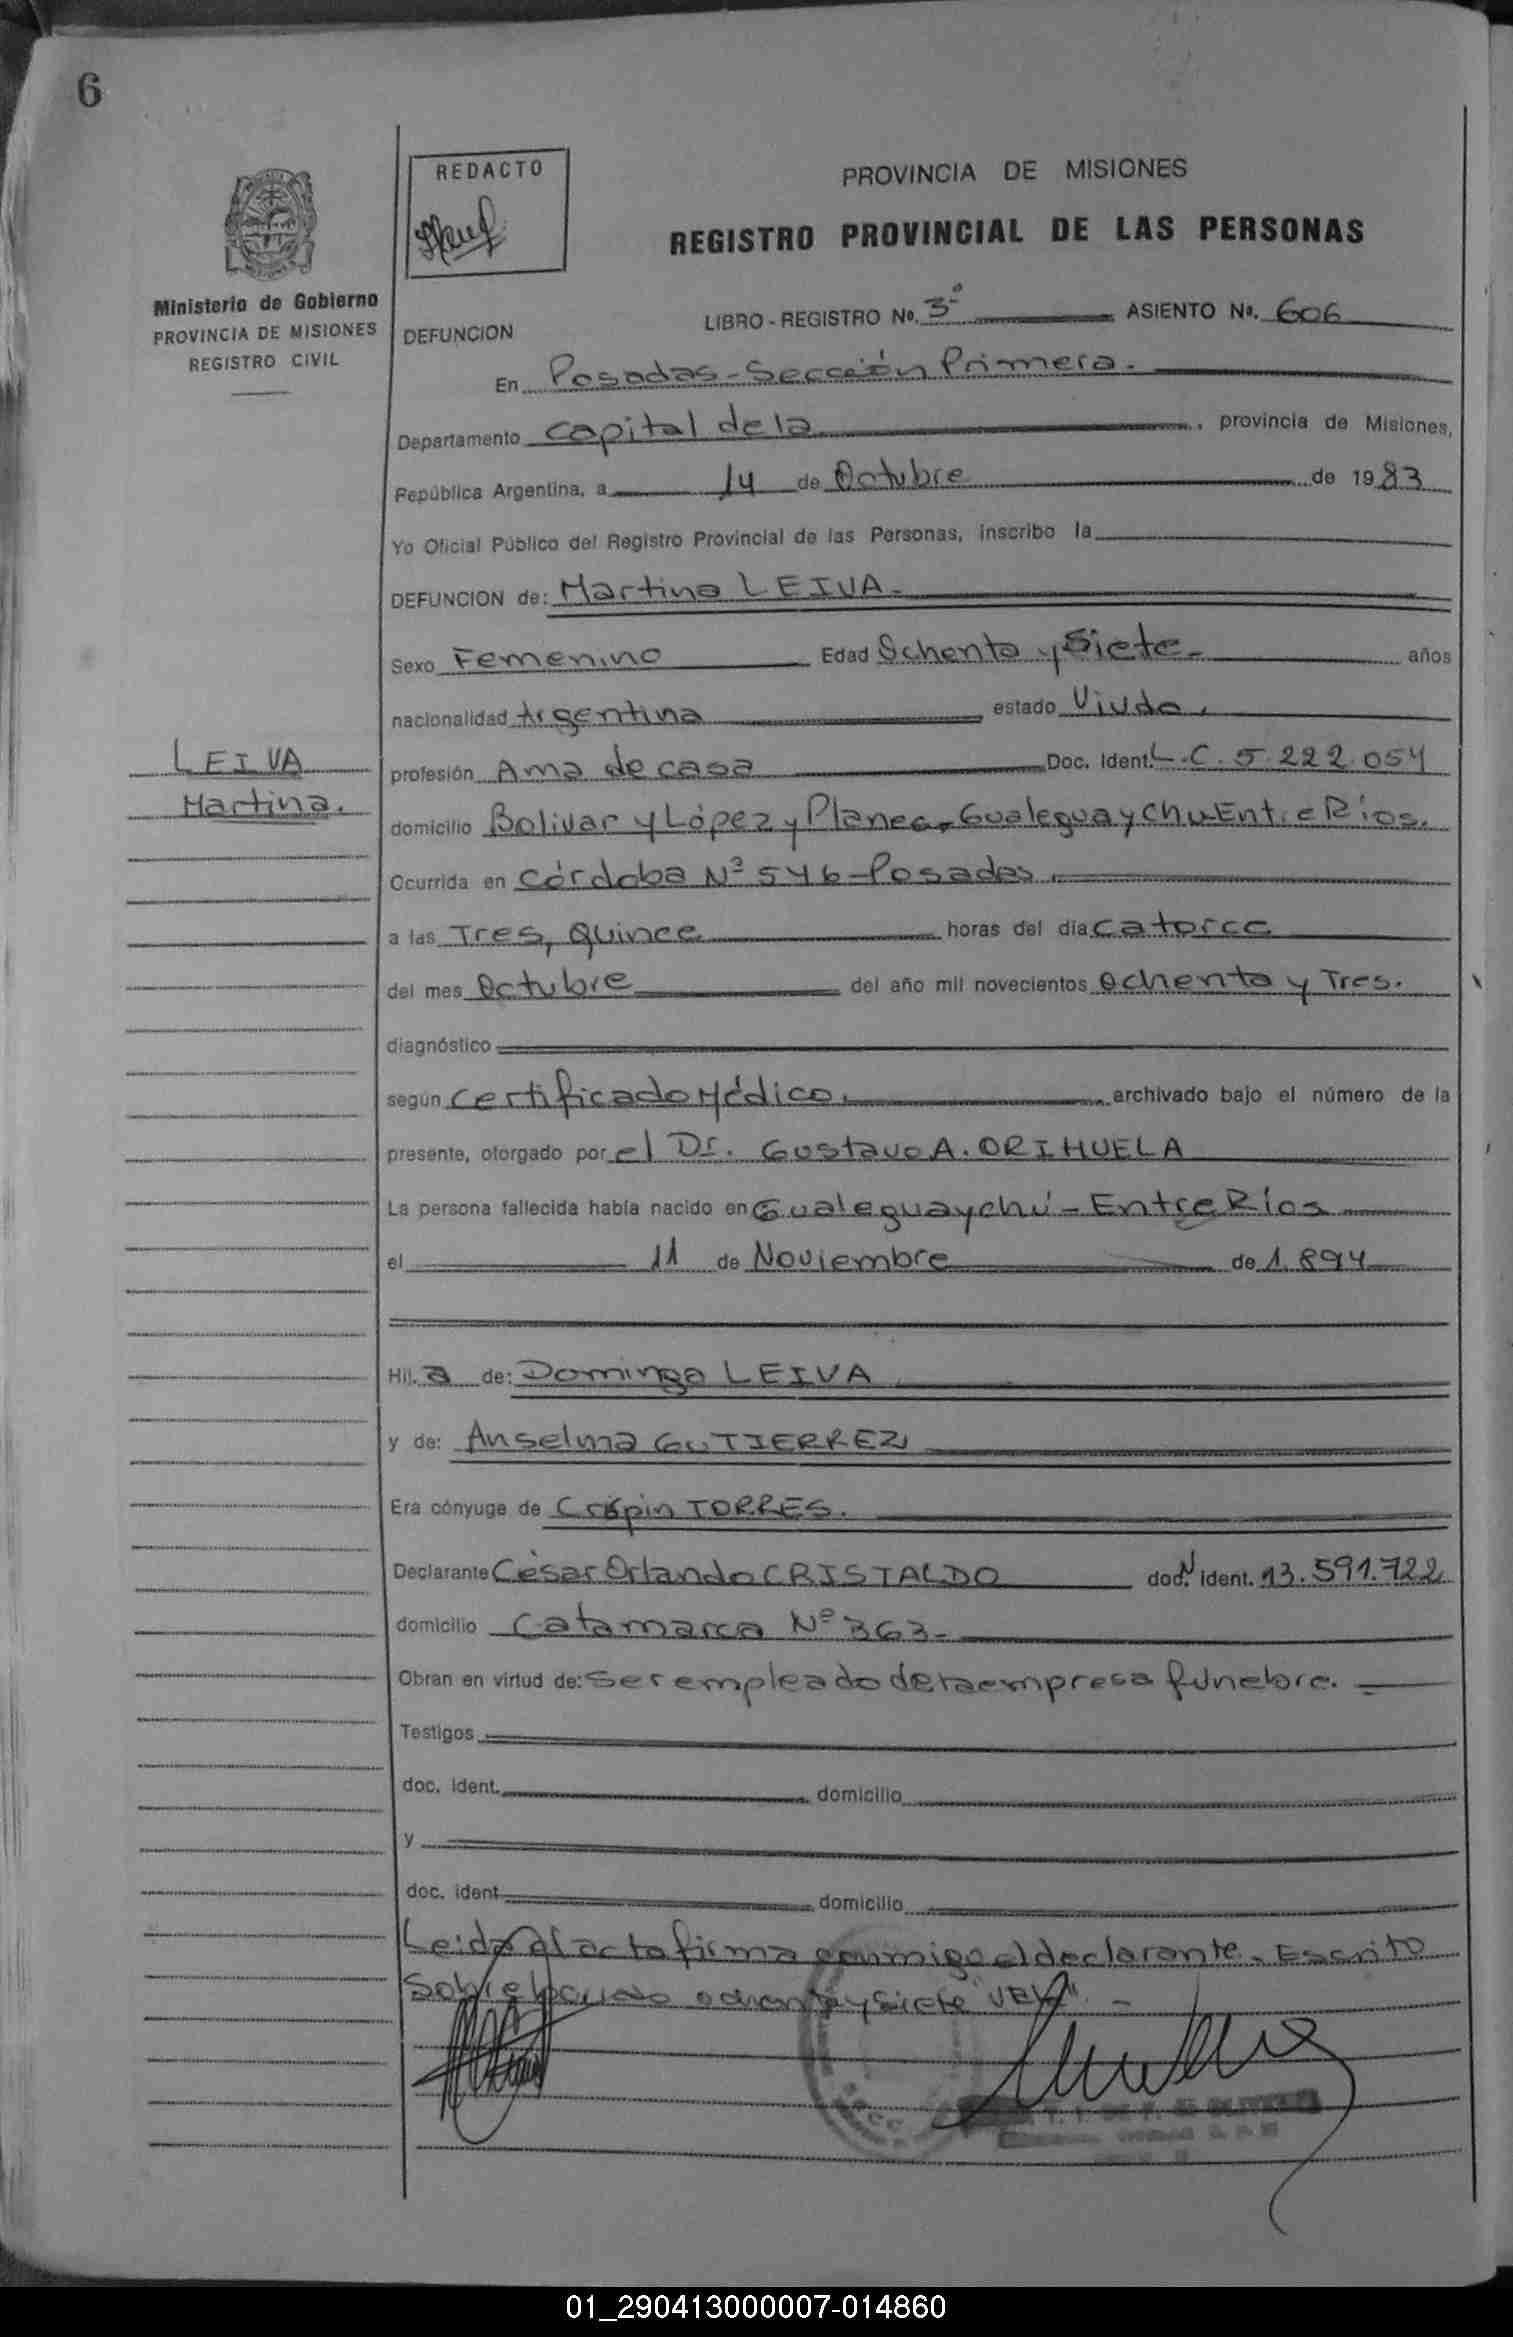 6
REDACTO
PROVINCIA DE MISIONES
REGISTRO PROVINCIAL DE LAS PERSONAS
Ministerio de Gobierno
PROVINCIA DE MISIONES
REGISTRO CIVIL
DEFUNCION
LIBRO - REGISTRO No. 3º ASIENTO No. 606
En Posadas - Sección Primera.
Departamento Capital de la , provincia de Misiones,
República Argentina, a 14 de Octubre de 1983
Yo Oficial Público del Registro Provincial de las Personas, inscribo la
DEFUNCION de: Martina LEIVA.
Sexo Femenino Edad Ochenta y Siete - años
nacionalidad Argentina estado Viuda.
LEIVA
Martina.
profesión Ama de casa Doc. Ident. L.C. 5.222.054
domicilio Bolivar y López y Planes - Gualeguaychu Entre Ríos.
Ocurrida en Córdoba Nº 546 - Posadas.
a las Tres, Quince horas del día Catorce
del mes Octubre del año mil novecientos Ochenta y Tres.
diagnóstico
según Certificado Médico. archivado bajo el número de la
presente, otorgado por el Dr. Gustavo A. ORIHUELA
La persona fallecida había nacido en Gualeguaychú - Entre Ríos
el 11 de Noviembre de 1.894
Hij. a de: Domingo LEIVA
y de: Anselma GUTIERREZ
Era cónyuge de Crispin TORRES.
Declarante César Orlando CRISTALDO doc. N ident. 13.591.722
domicilio Catamarca Nº 363 -
Obran en virtud de: Ser empleado de la empresa fúnebre.
Testigos
doc. ident. domicilio
y
doc. ident. domicilio
Leida el acta firma conmigo el declarante. Escrito
Sobre ochenta y siete
01_290413000007-014860